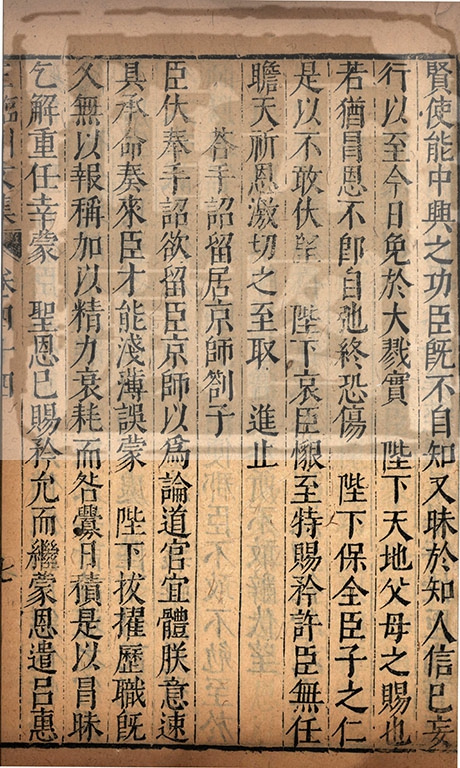 賢使能中興之功臣旣不自知又昧於知人信已妄
行以至今日免於大戮實　陛下天地父母之賜也
若猶冒恩不卽自弛終恐傷　陛下保全臣子之仁
是以不敢伏望　陛下哀臣懇至特賜矜許臣無任
瞻天祈恩激切之至取　進止
答手詔留居京師劄子
臣伏奉手詔欲留臣京師以爲論道官宜體朕意速
具承命奏來臣才能淺薄誤蒙　陛下拔擢歷職旣
久無以報稱加以精力衰耗而咎釁日積是以冒昧
乞解重任幸蒙　聖恩已賜矜允而繼蒙恩遣呂惠
王臨川文集　卷四十四　七